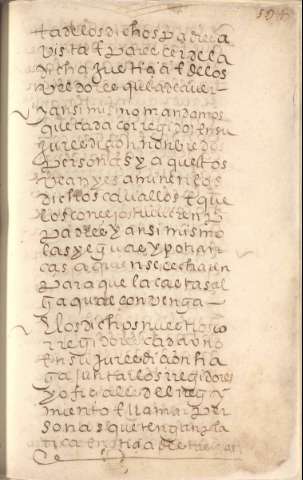 ta de los dichos padres a
vista e pareçer de la
dicha justiçia e de los
veedores que la de aver
y ansimismo mandamos
que cada corregidor en su
juredicion nonbre dos
personas y aquestos
vean y esaminen los
dichos cavallos e que
los conçejos tuvieren p
padres y ansimismo
las yeguas y potran
cas a quien se echaren
para que la casta sal
ga qual convenga
E los dichos nuestros co
rregidores cada uno
en su juredicion ha
ga juntar los rregidores
y ofiçiales del rregi
miento e llamar per
sonas que tengan pla
tica e notiçia de